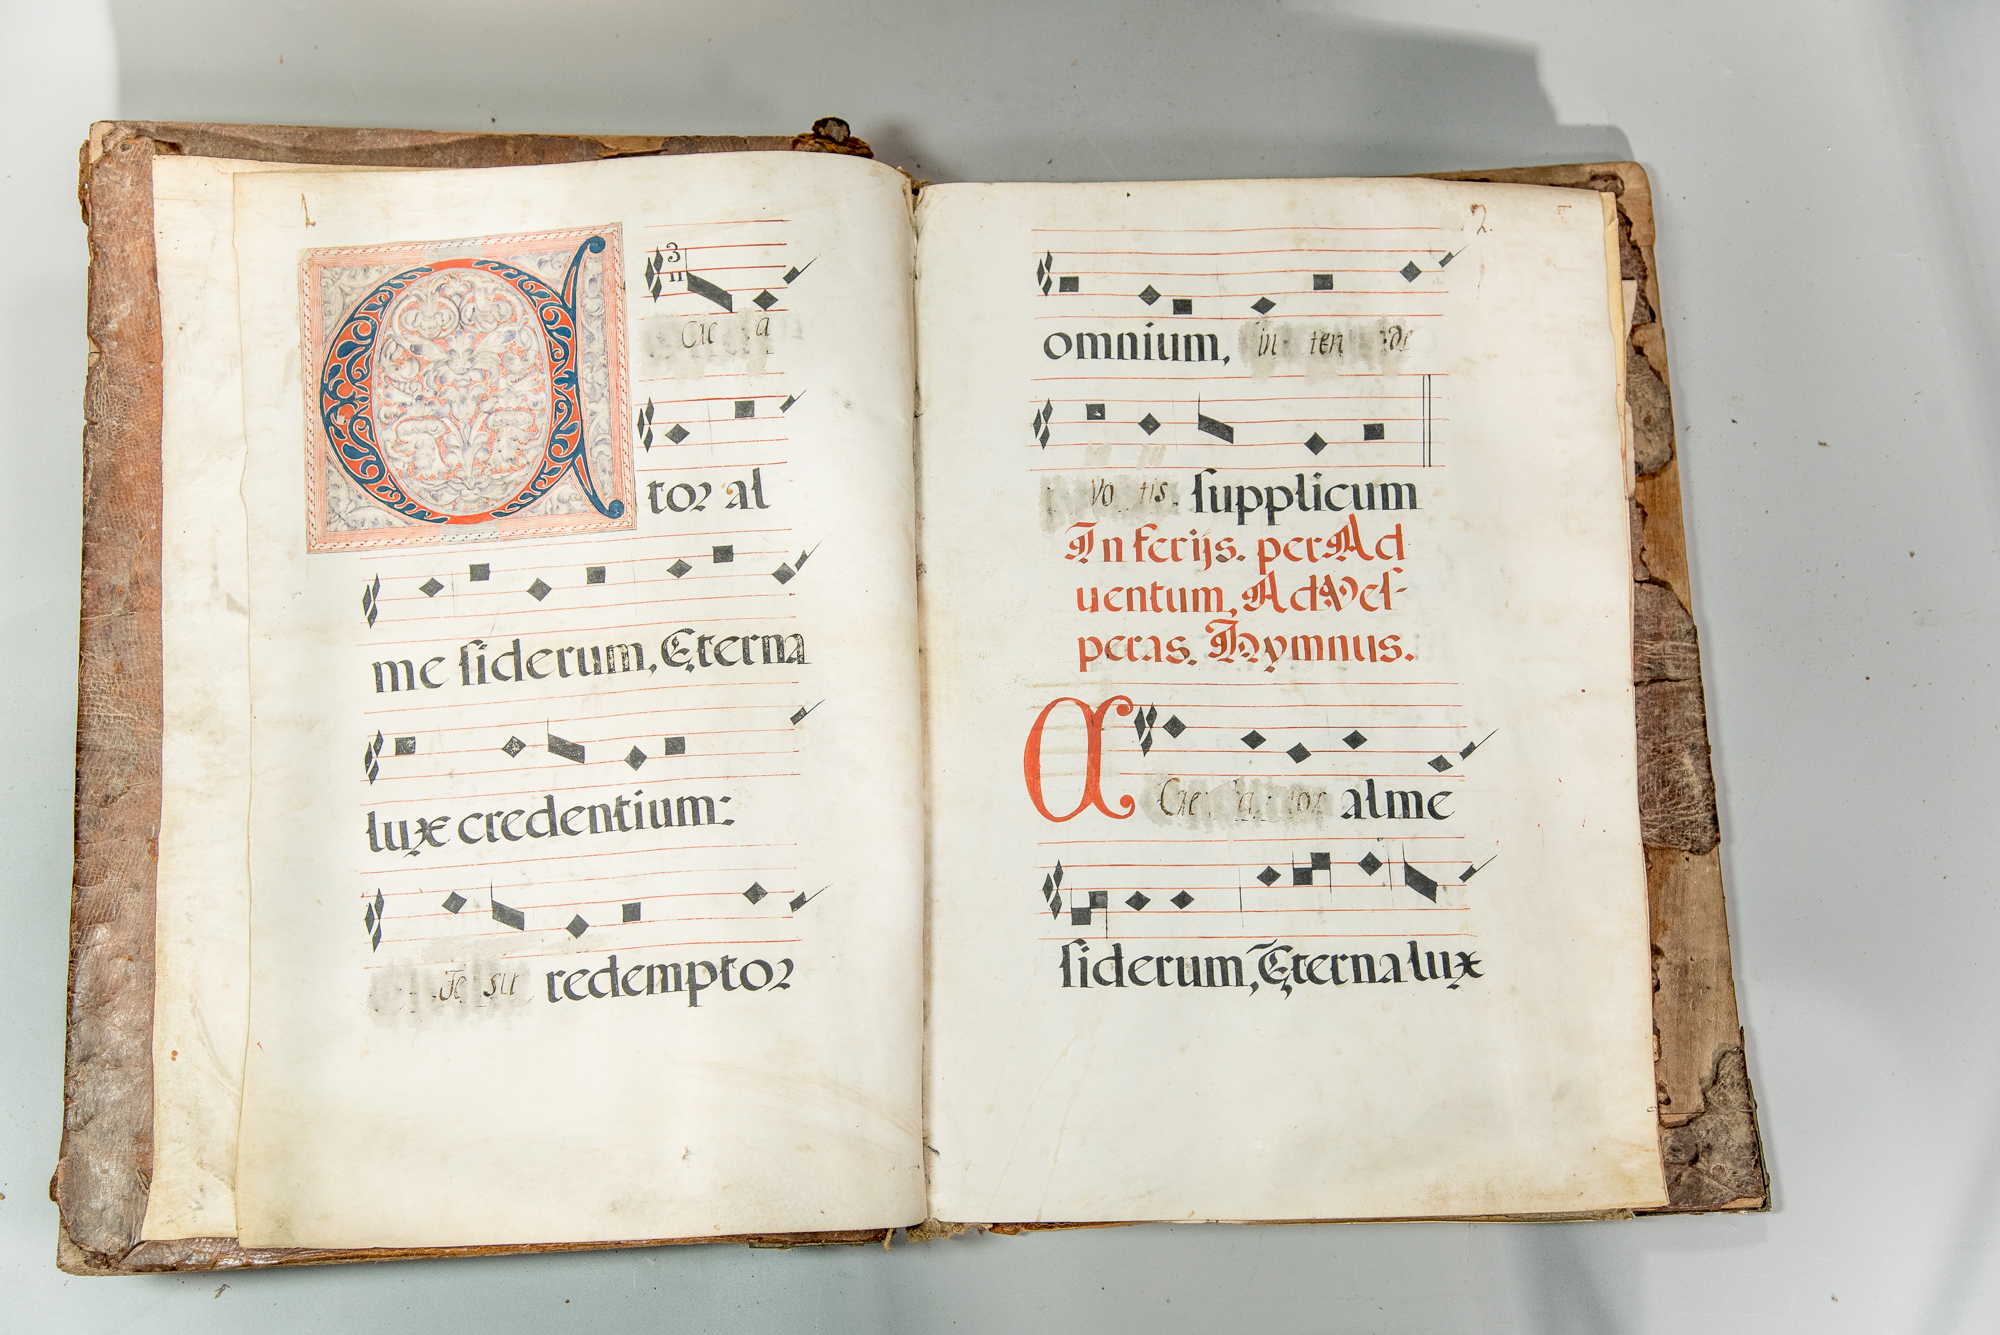 1
3
Cre a
tor al
me siderum, Eterna
lux credentium:
Je su redemptor
2.
omnium, in ten de
vo tis. supplicum
In ferijs. per Ad
uentum, Ad Ves-
peras. Hymnus.
A Cre a tor alme
siderum, Eterna lux